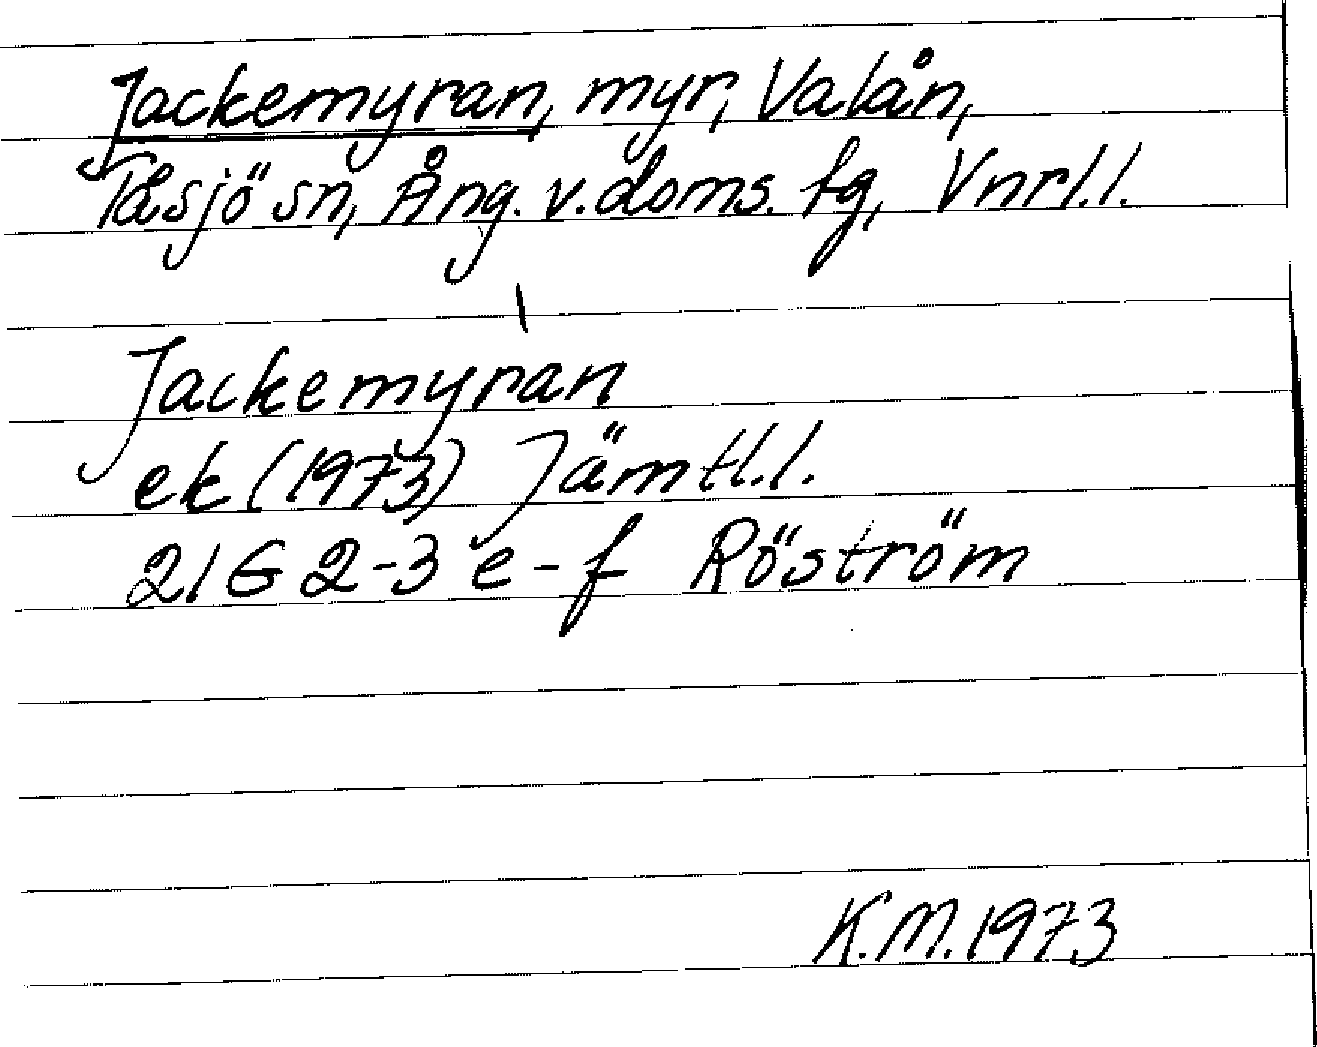 Jackemyran, myr, Valån,
Tåsjö sn, Ång. v. doms. tg, Vnrl.l.
Jackemyran
ek (1973) Jämtl.l.
21G 2-3 e-f Röström
K.M. 1973